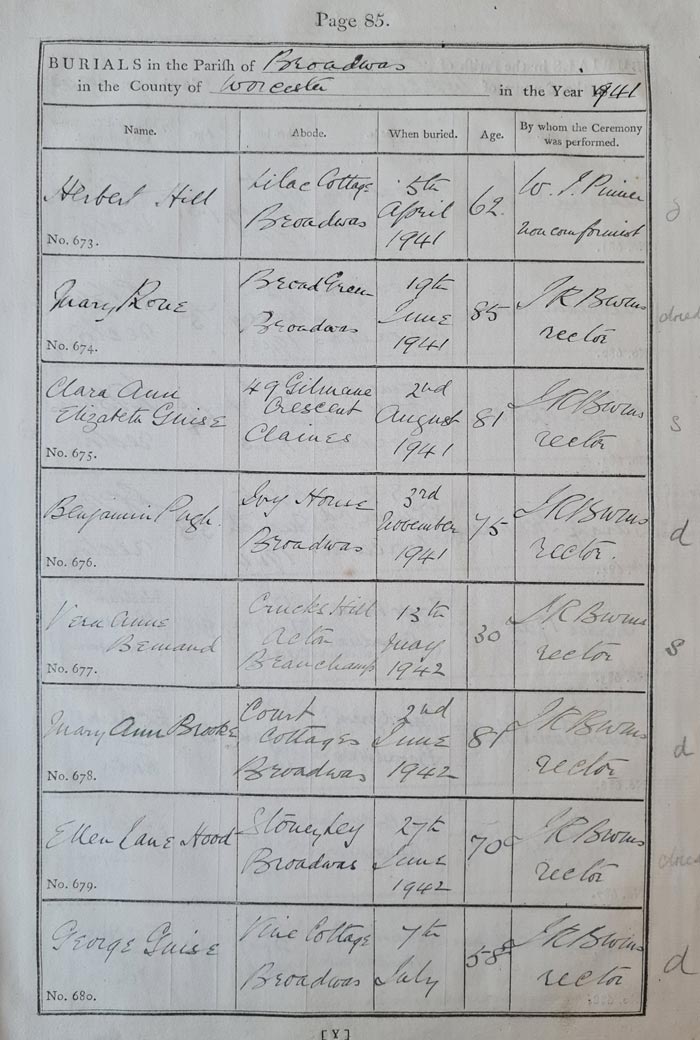 Page 85.
BURIALS in the Parish of Broadwas
in the County of Worcester in the Year 1941
Name. Abode. When buried. Age. By whom the Ceremony was performed.
Herbert Hill
No. 673.
Lilac Cottage
Broadwas
5th
April
1941
62.
W. J. Pinner
nonconformist
d
Mary Rone
No. 674.
Broad Green
Broadwas
19th
June
1941
85
J R B
rector
Clara Ann
Elizabeth Guise
No. 675.
49 Gilmane
Crescent
Claines
2nd
August
1941
81
J R B
rector
s
Benjamin Pugh.
No. 676.
Ivy House
Broadwas
3rd
November
1941
75
J R B
rector.
d
Vera Anne
Bemand
No. 677.
Crucks Hill
Acton
Beauchamp
13th
May
1942
30
J R B
rector
s
Mary Ann Brooke
No. 678.
Court
Cottages
Broadwas
2nd
June
1942
81
J R B
rector
d
Ellen Jane Hood
No. 679.
Stoney Ley
Broadwas
27th
June
1942
70
J R B
rector
George Guise
No. 680.
Vine Cottage
Broadwas
7th
July
58
J R B
rector
d
[Y]